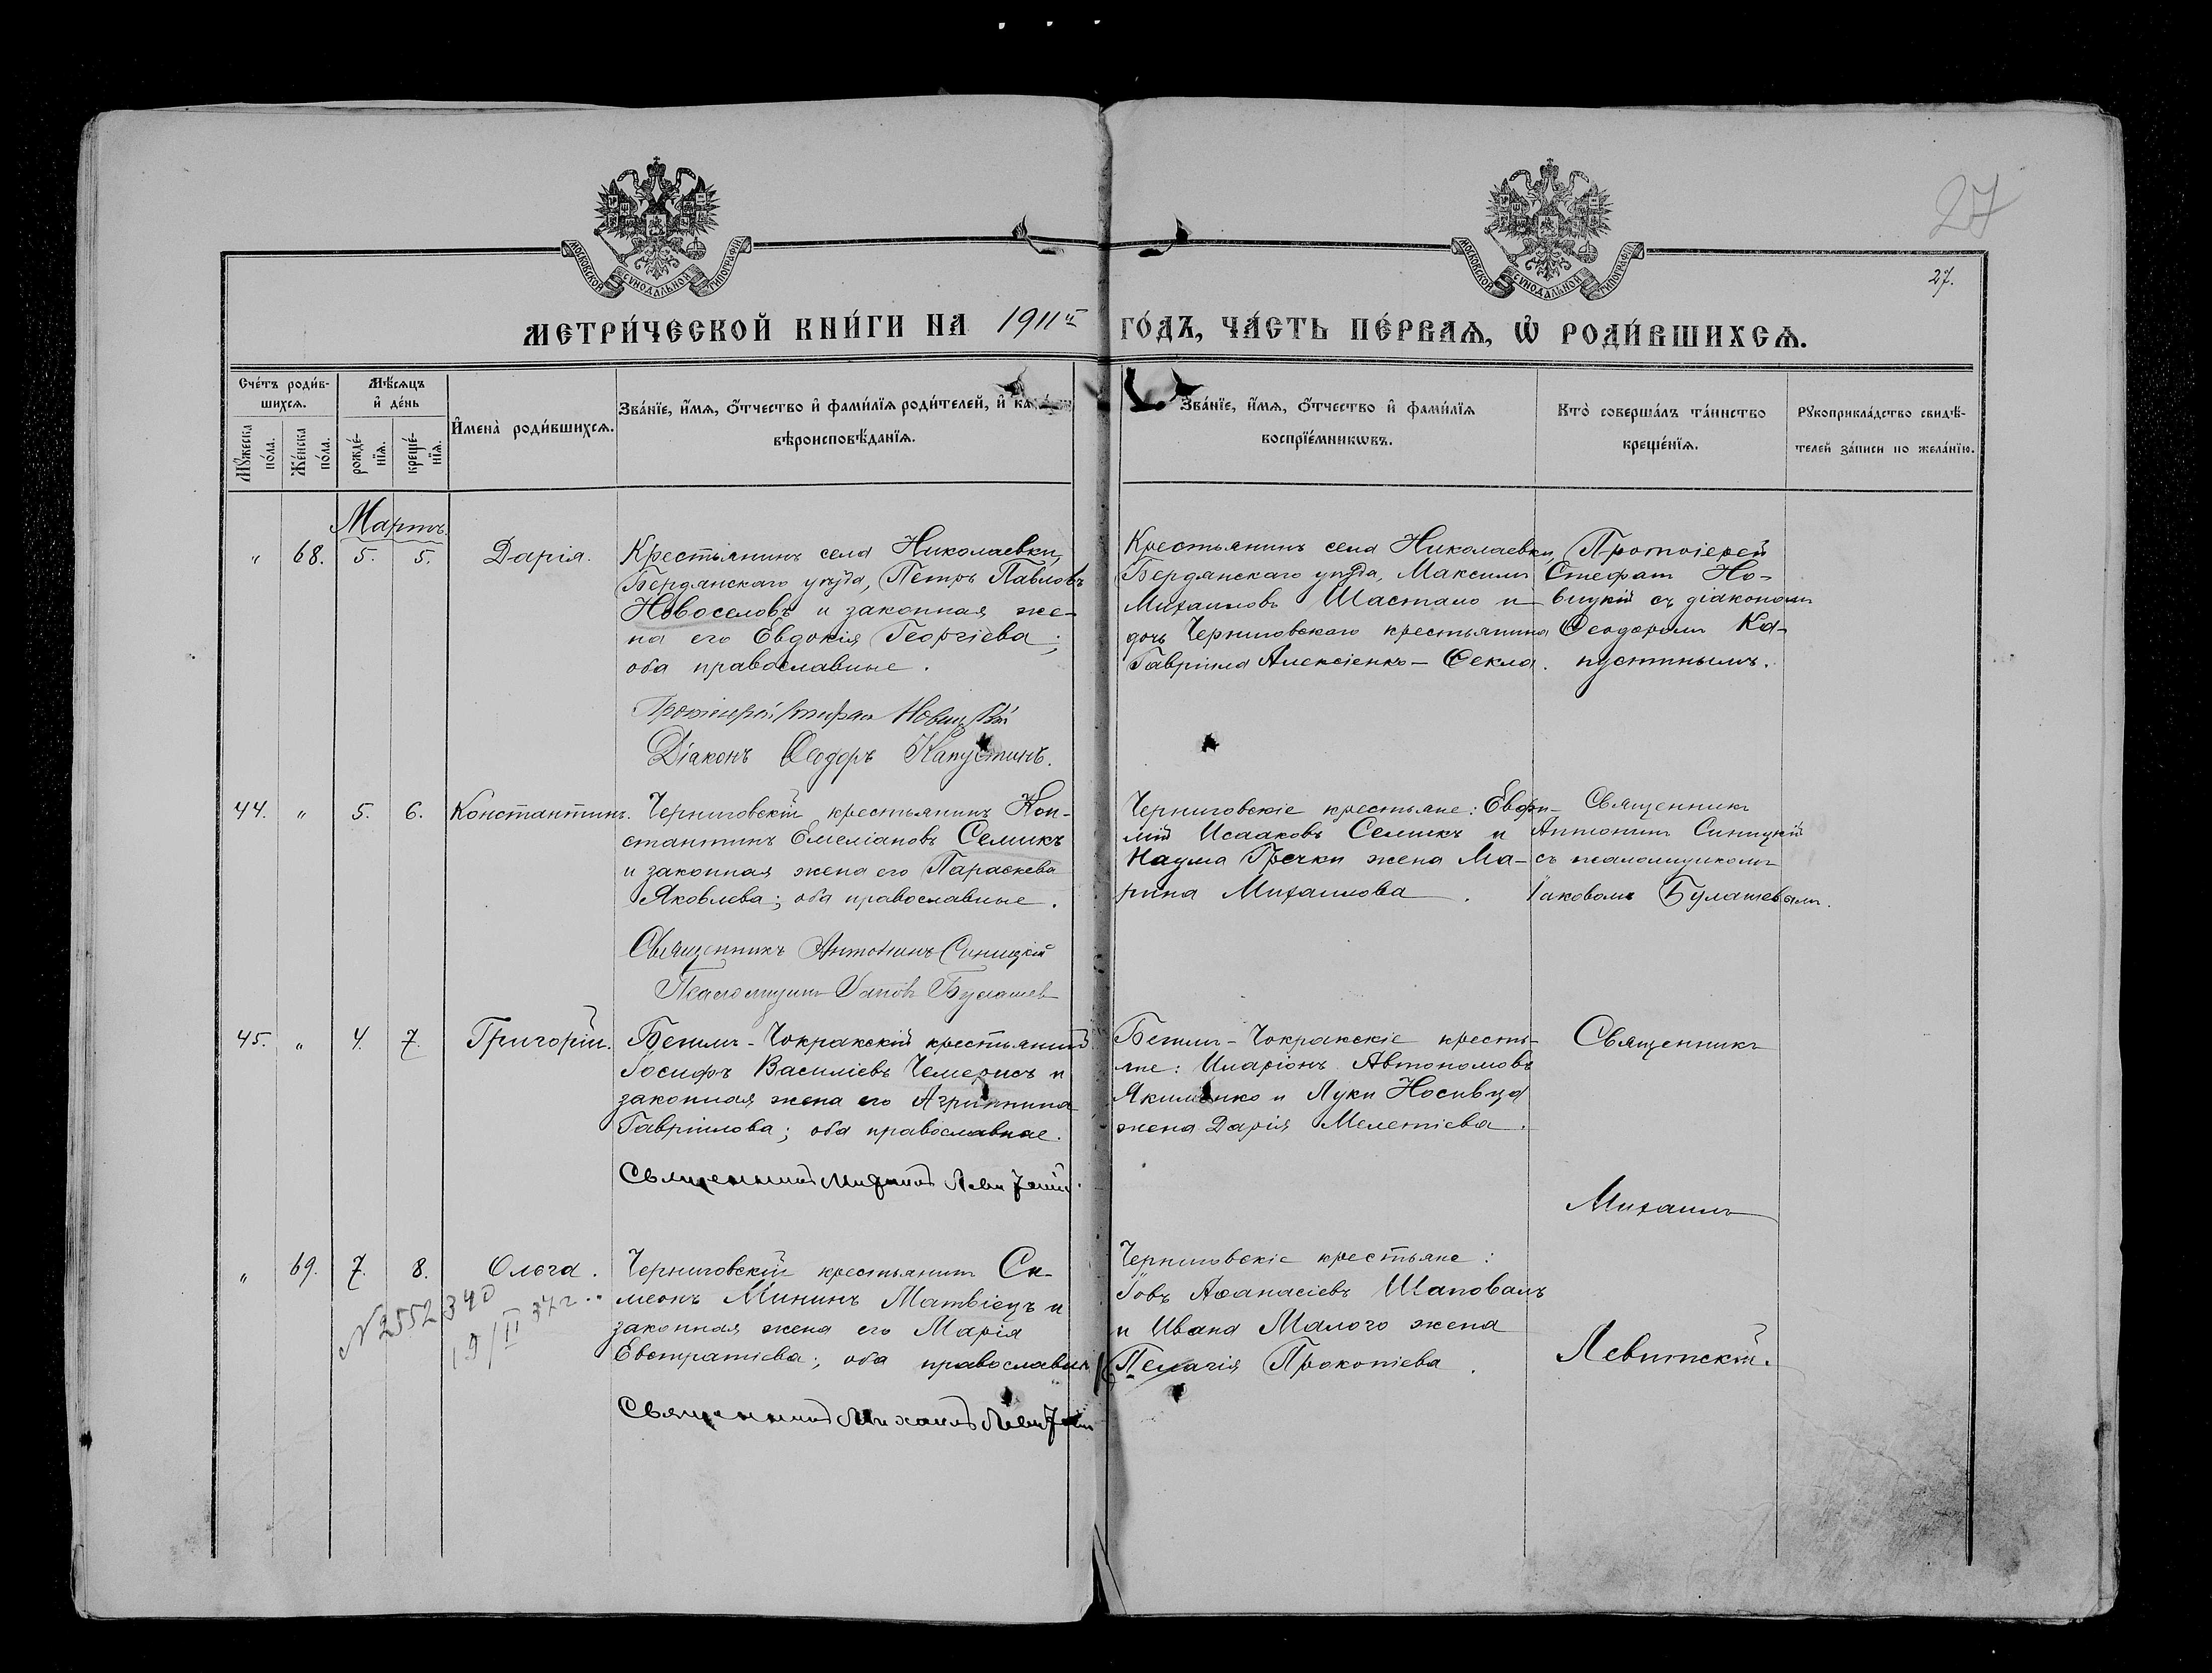 27
27.
МОСКОВСКОЙ СѴНОДАЛЬНОЙ ТИПОГРАФІИ
МОСКОВСКОЙ СѴНОДАЛЬНОЙ ТИПОГРАФІИ
МЕТРИ́ЧЕСКОЙ КНИ́ГИ НА 1911й ГО́ДЪ, ЧА́СТЬ ПЕ́РВАѦ, Ѡ҆ РОДИ́ВШИХСѦ.
Сче́тъ роди́в-
шихсѧ.
Мꙋ́жеска по́ла.
Же́нска по́ла.
Мѣ́сѧцъ
и҆ де́нь
рожде́-
нїѧ.
креще́-
нїѧ.
И҆мена̀ роди́вшихсѧ.
Зва́нїе, и҆́мѧ, ѻ҆́тчество и҆ фами́лїѧ роди́телей, и҆
вѣроисповѣ́данїѧ.
Зва́нїе, и҆́мѧ, ѻ҆́тчество и҆ фами́лїѧ
воспрїе́мникѡвъ.
Кто̀ соверша́лъ та́инство
креще́нїѧ.
Рꙋкоприкла́дство свидѣ́-
телей за́писи по жела́нїю.
Мартъ.
" 68. 5. 5. Дарія.
Крестьянинъ села Николаевки,
Бердянскаго уѣзда, Петръ Павловъ
Новоселовъ и законная же-
на его Евдокія Георгіева;
оба православные.
Протоіерей Стефан Новицкій
Діаконъ Ѳеодоръ Капустинъ.
Крестьянинъ села Николаевки,
Бердянскаго уѣзда, Максимъ
Михаиловъ Шастало и
дочь Черниговскаго крестьянина
Гавріила Алексіенко - Ѳекла.
Протоіерей
Стефанъ Но-
вицкій съ діакономъ
Ѳеодоромъ Ка-
пустинымъ.
44. " 5. 6. Константинъ.
Черниговскій крестьянинъ Кон-
стантинъ Емеліановъ Семикъ
и законная жена его Параскева
Яковлева; оба православные.
Священникъ Антонинъ Синицкій
Псаломщикъ Іаковъ Булашев
Черниговскіе крестьяне: Евфи-
мій Исааковъ Семикъ и
Наума Гречки жена Ма-
рина Михаилова.
Священникъ
Антонинъ Синицкій
съ псаломщикомъ
Іаковомъ Булашевымъ.
45. " 4. 7. Григорій.
Бешли-Чокракскій крестьянинъ
Іосифъ Василіевъ Чемерисъ и
законная жена его Агриппина
Гавріилова; оба православные.
Священникъ Михаилъ Левитскій.
Бешли-Чокракскіе кресть-
яне: Иларіонъ Автономовъ
Якименко и Луки Носивца
жена Дарія Мелетіева.
Священникъ
Михаилъ
Левитскій.
" 69. 7. 8. Ольга.
N 2552340
19/II 37г..
Черниговскій крестьянинъ Си-
меонъ Мининъ Матвіецъ и
законная жена его Марія
Евстратіева; оба православны
Священникъ Михаилъ Левитскій
Черниговскіе крестьяне:
Іовъ Аѳанасіевъ Шаповалъ
и Ивана Малого жена
Пелагія Прокопіева.